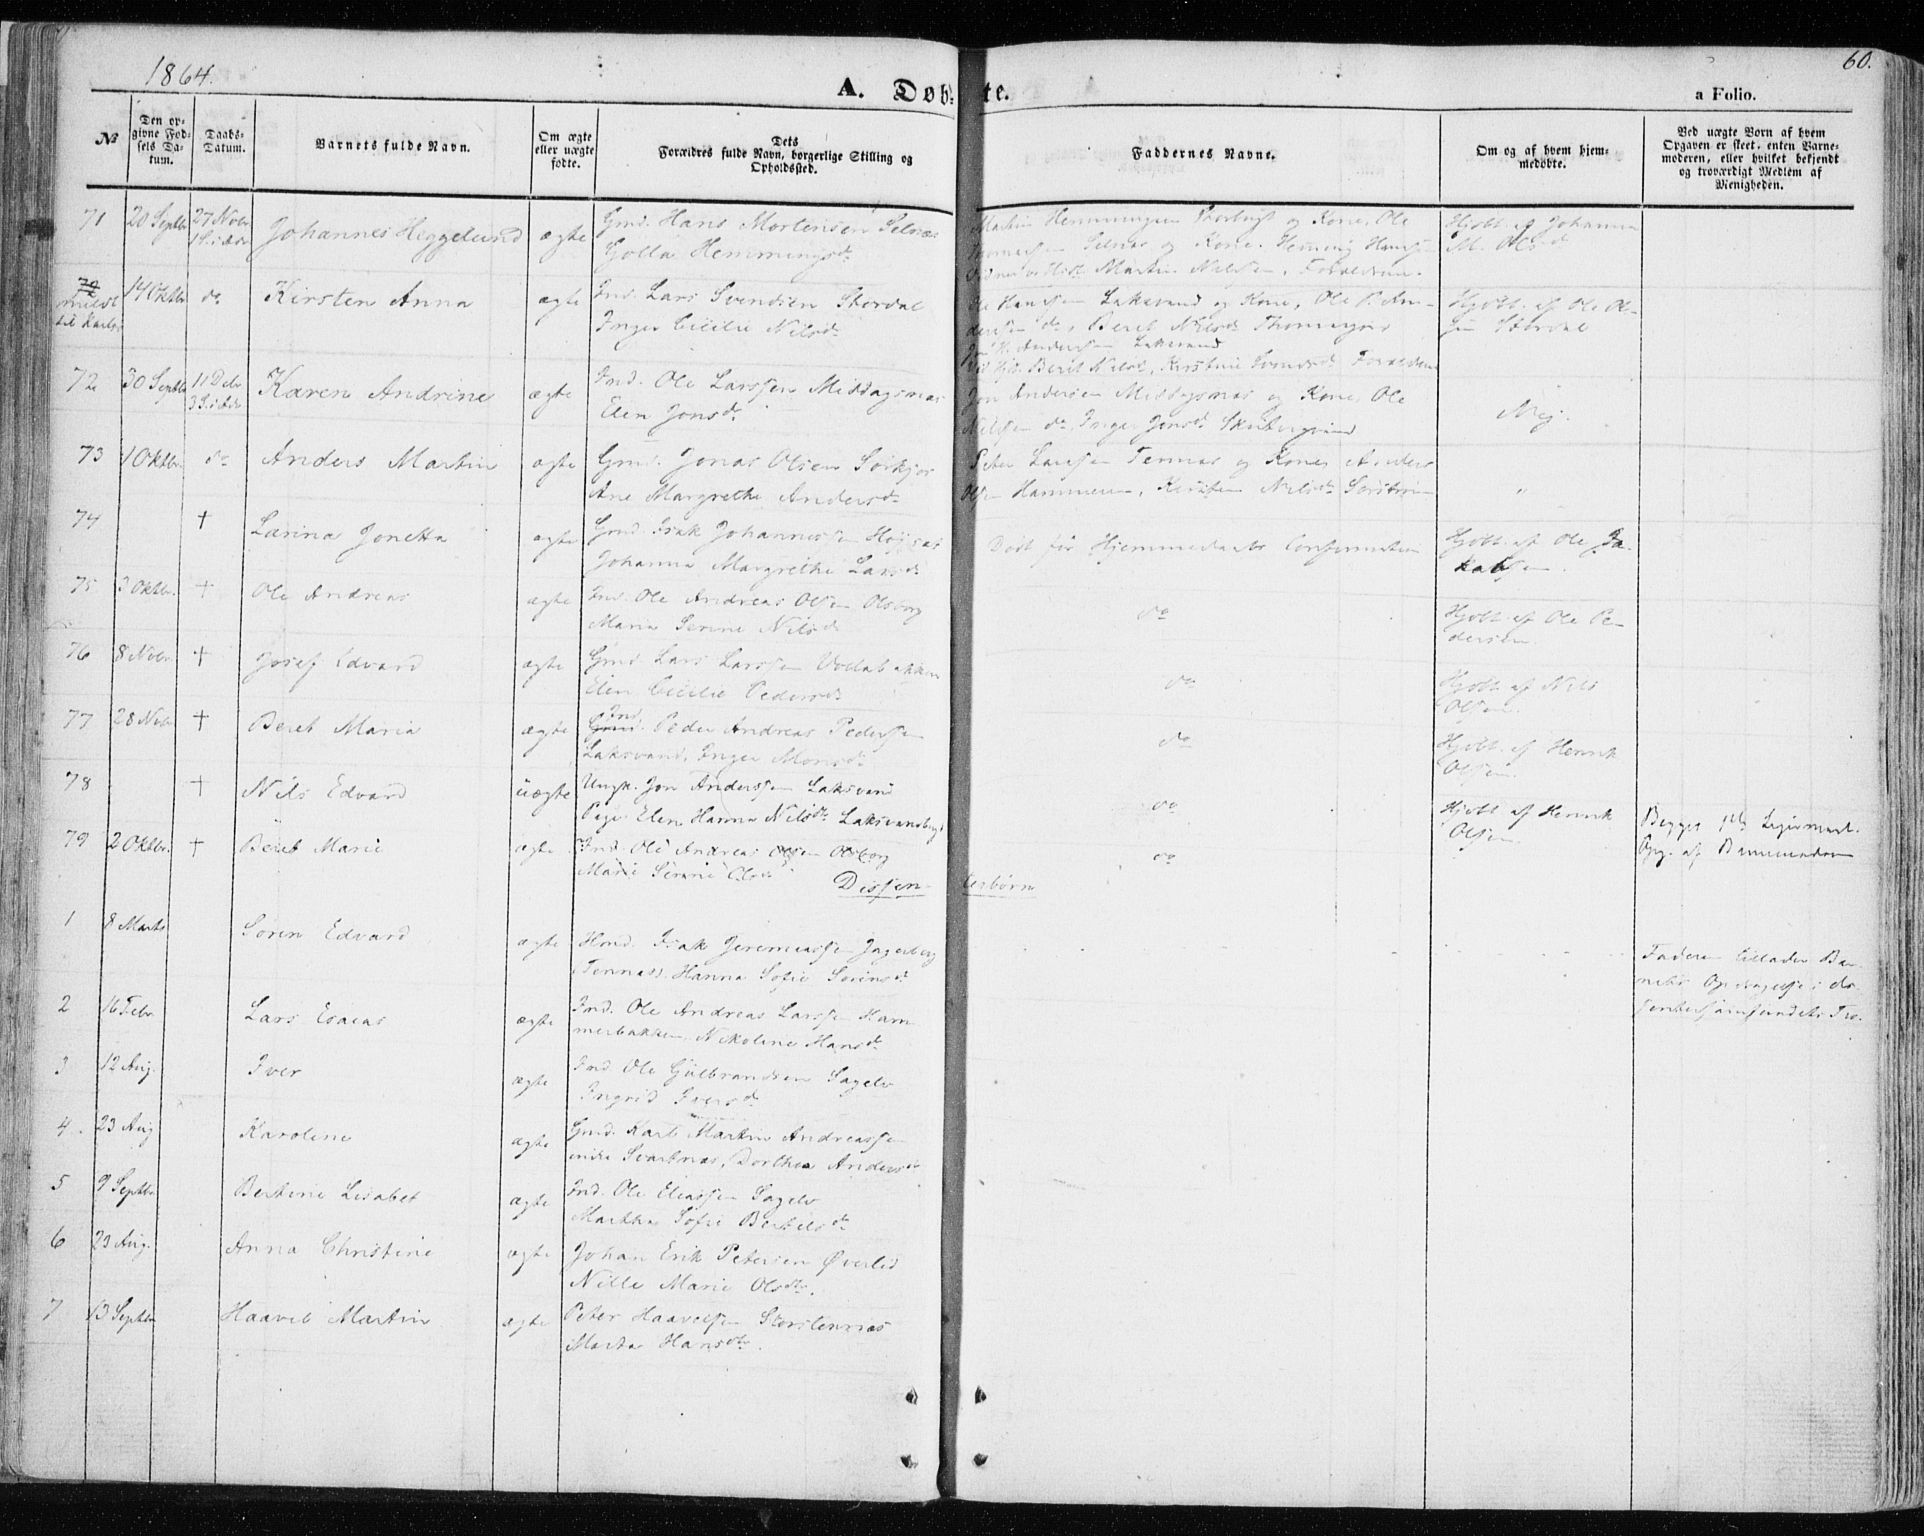 1864.
60.
A. Døbte.
a Folio.
№
Den op-
givne Fød-
sels Da-
tum.
Daabs-
Datum.
Barnets fulde Navn.
Om ægte
eller uægte
fødte.
Dets
Forældres fulde Navn, borgerlige Stilling og
Opholdssted.
Faddernes Navne.
Om og af hvem hjem-
medøbte.
Ved uægte Børn af hvem
Opgaven er skeet, enten Barne-
moderen, eller hvilket bekjendt
og troværdigt Medlem af
Menigheden.
71 20 Septbr 27 Novbr Johannes Heggelund ægte Gmd. Hans Mortensen Selnæs
Golla Hemmingsdr
Martin Hemmingsen og Kone, Ole
Selnæs og Kone. Henning Hansen
Martin Nilsen, Forældrene.
Hjdbt af Johannes
M. Olsen
72 14 Oktbr do Kirsten Anna ægte Ind. Lars Svendsen Stordal
Inger Cicilie Nilsdr
Ole Hansen Laksvand og Kone, Ole P. An-
dersen do, Beret Nilsdr
Andersen Laksvand
Beret Nilsdr, Kirstine Forældrene
Hjdbt. af Ole Ol-
sen Stordal
72 30 Septbr 11 Debr Karen Andrine ægte Ind. Ole Larssen Middagsnæs
Elen Jonsdr
Jon Andersen Middagsnæs og Kone, Ole
Nilsen do, Inger Jonsdr
Nej.
73 1 Oktbr. do Anders Martin ægte Gmd. Jonas Olsen Sørkjos
Ane Margrethe Andersdr
Peter Larssen Tennæs og Kone, Anders
Olsen Hammeren, Kirsten Nilsdr
"
74 † Larina Jonetta ægte Gmd. Isak Johannessen
Johanna Margrethe Larsdr
Død før Hjemmedaabs Confirmation
Hjdbt. af Ole Ja-
kobsen.
75 3 Oktbr. † Ole Andreas ægte Ind. Ole Andreas Olsen Olsborg
Maria Serine Nilsdr
do
Hjdbt. af Ole Pe-
dersen.
76 8 Novbr. † Josef Edvard ægte Gmd. Lars Larssen
Elen Cicilie Pedersdr
do
Hjdbt af Nils
Olsen.
77 28 Novbr † Beret Maria ægte Ind. Peder Andreas Pedersen
Laksvand, Inger Monsdr
do
Hjdbt. af Henrik
Olsen.
78 † Nils Edvard uægte Ungk. Jon Anderssen Laksvand
Pige Elen Hanna Nilsdr
do
Hjdbt af Henrik
Olsen.
Begges
Opg. af Barnemoderen
79 2 Oktbr. † Beret Marie ægte Ind. Ole Andreas Olsen Olsborg
Marie Serine Olsdr
do
Dissenterbørn
1 8 Marts Søren Edvard ægte Hmd. Isak Jeremiassen
(Tennæs). Hanna Sofie Sørensdr
Faderen tillader Bar-
nets Opdragelse i dis-
sentersamfundets Tro.
2 16 Febr Lars Esaias ægte Ind. Ole Andreas Larssen Ham-
merbakken, Nikoline Hansdr
3 12 Aug. Iver ægte Ind. Ole Gulbrandsen Sagelv
Ingrid Iversdr
4. 23 Aug Karoline ægte Gmd. Karl Martin Andreassen
Svartnæs, Dorthea Andersdr
5 9 Septbr. Bertine Lisabet ægte Ind. Ole Eliassen Sagelv
Martha Sofie Bertelsdr
6 23 Aug. Anna Christine ægte Johan Erik Petersen Øverlid
Nille Marie Olsdtr.
7 13 Septbr Haavel Martin ægte Peter Haavelsen Storstennæs
Marta Hansdtr.